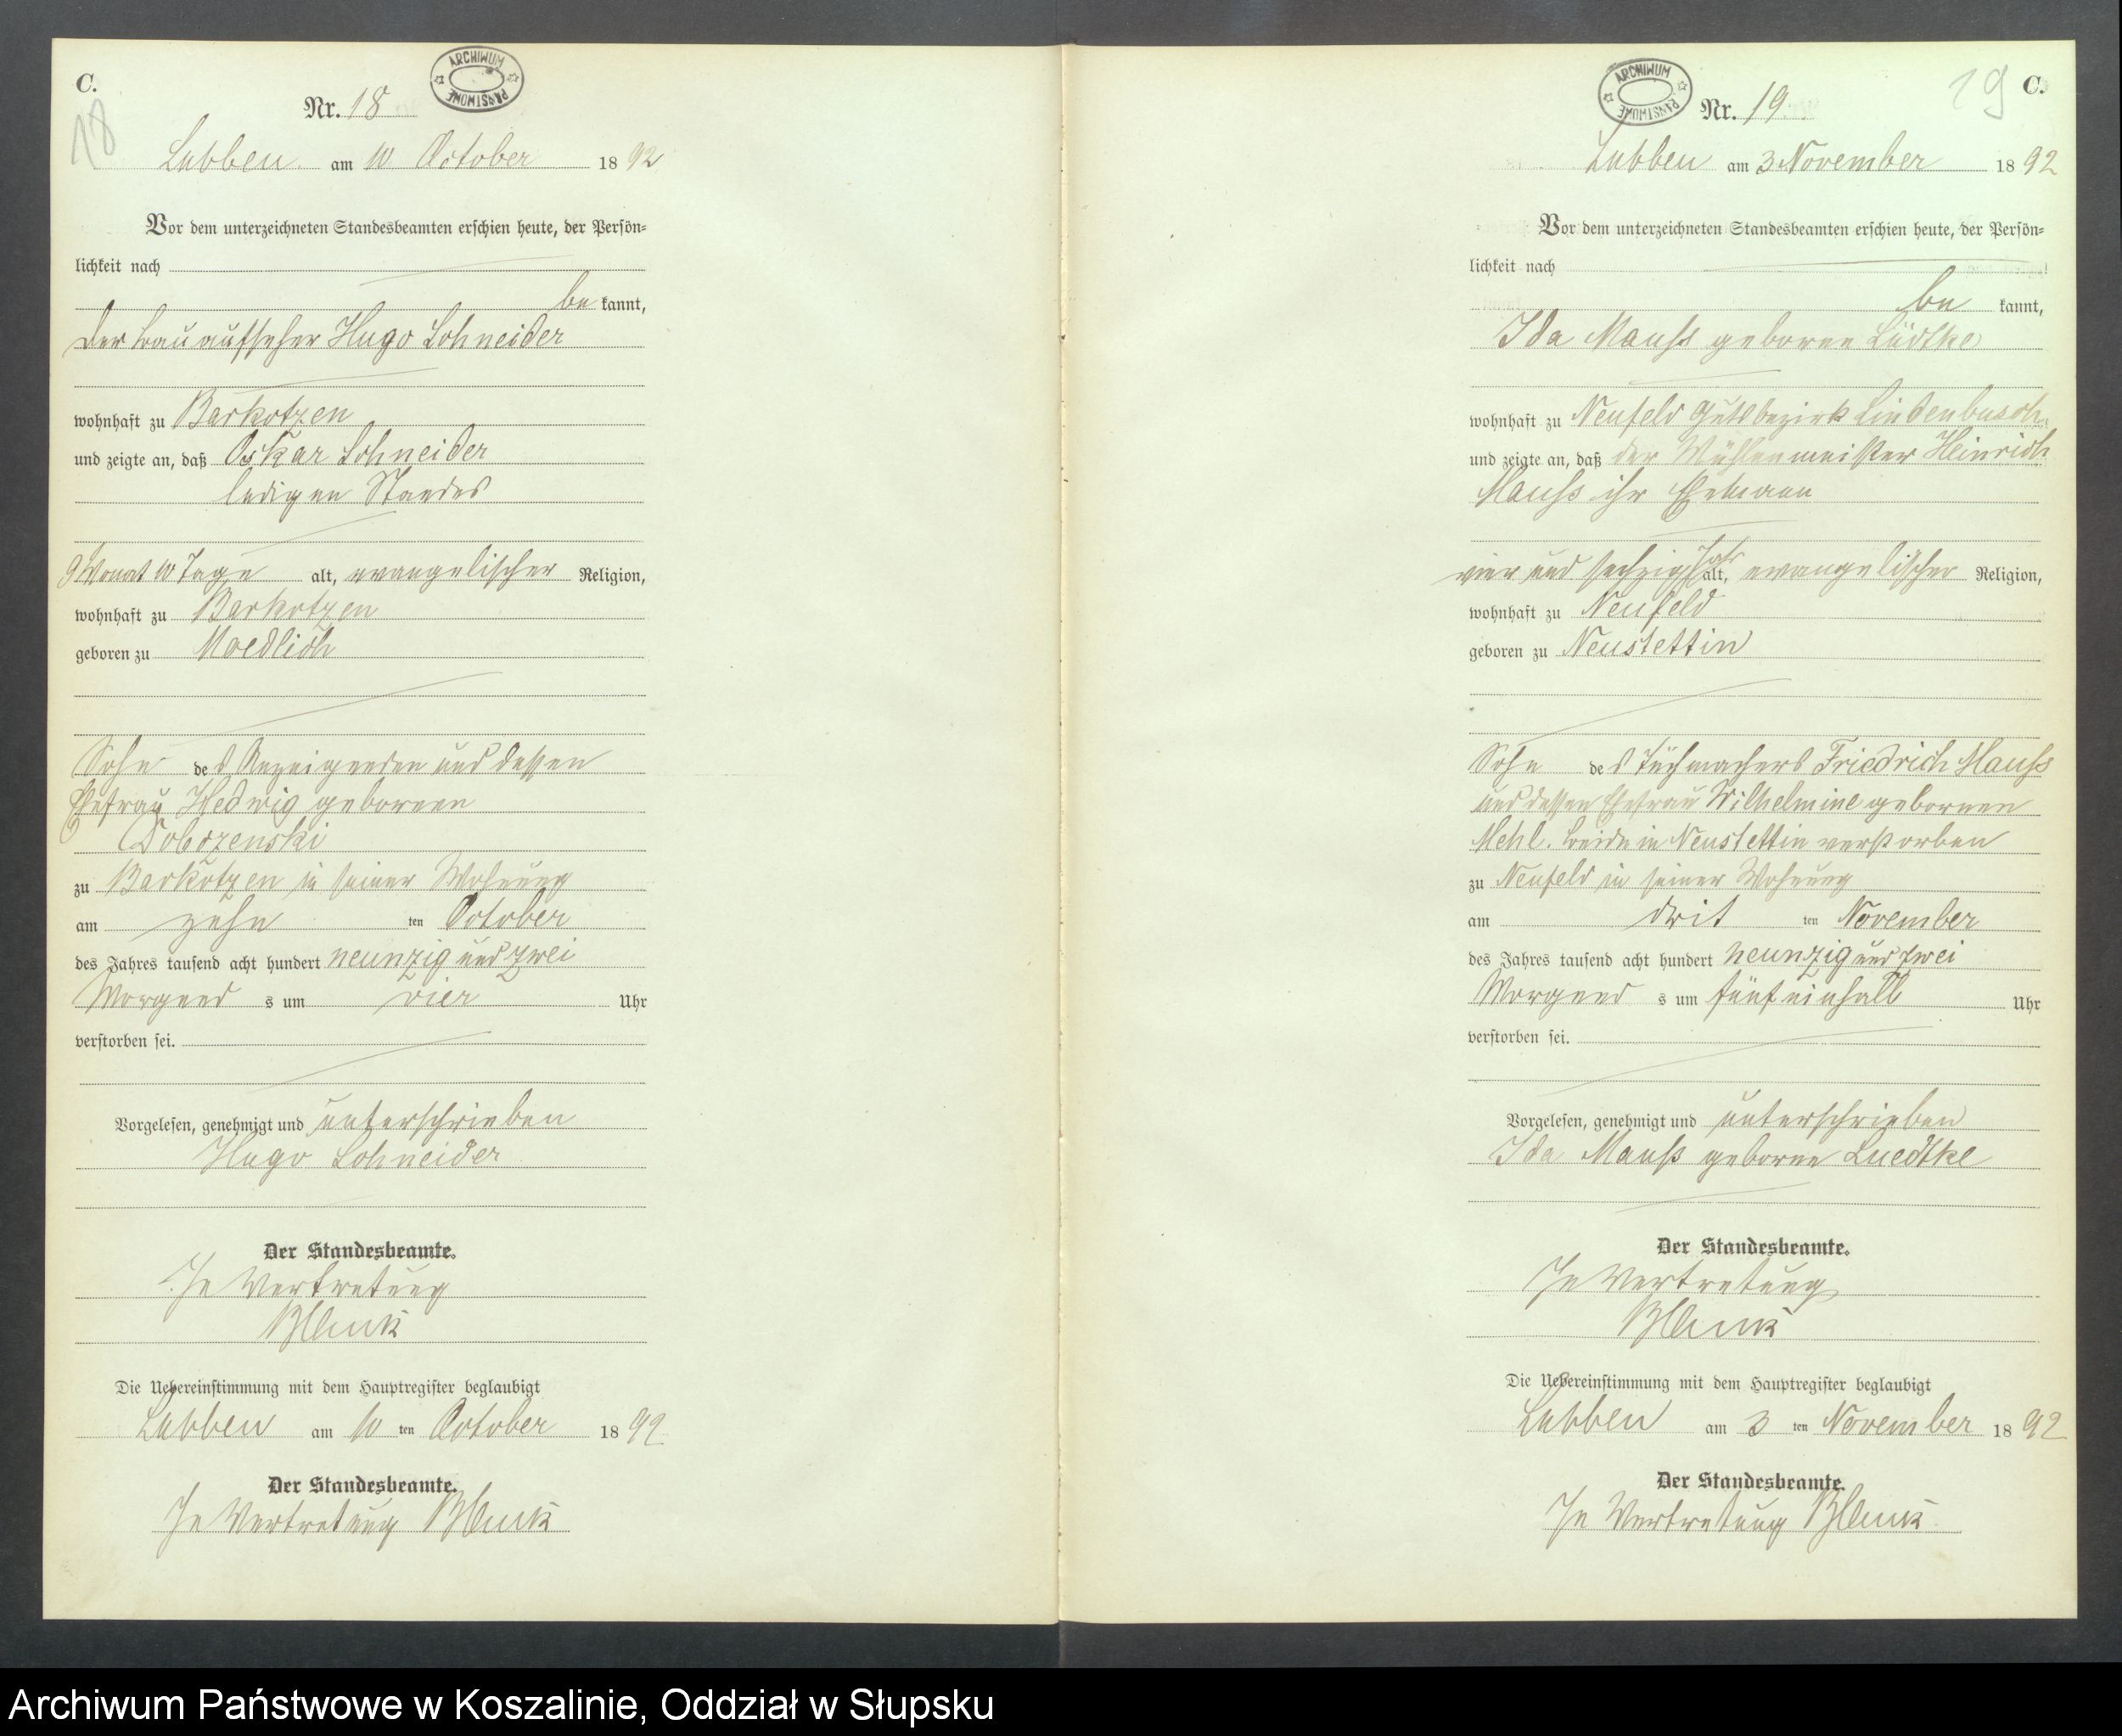 C.
18
Nr. 18
ARCHIWUM PAŃSTWOWE
Lubben am 10 October 1892
Vor dem unterzeichneten Standesbeamten erschien heute, der Persön-
lichkeit nach
be kannt,
der Bauaufseher Hugo Schneider
wohnhaft zu Barkotzen
und zeigte an, daß Oskar Schneider
ledigen Standes
9 Monat 10 Tage alt, evangelischer Religion,
wohnhaft zu Barkotzen
geboren zu Moedlich
Sohn des Anzeigenden und dessen
Ehefrau Hedwig geborenen
Dobozenski
zu Barkotzen in seiner Wohnung
am zehn ten October
des Jahres tausend acht hundert neunzig und zwei
Morgens um vier Uhr
verstorben sei.
Vorgelesen, genehmigt und unterschrieben
Hugo Schneider
Der Standesbeamte.
In Vertretung
Die Uebereinstimmung mit dem Hauptregister beglaubigt
Lubben am 10 ten October 1892
Der Standesbeamte.
In Vertretung
C.
19
Nr. 19
ARCHIWUM PAŃSTWOWE
Lubben am 3 November 1892
Vor dem unterzeichneten Standesbeamten erschien heute, der Persön-
lichkeit nach
be kannt,
Ida Mauss geborne Lüdtke
wohnhaft zu Neufeld Gutsbezirk Lindenbusch
und zeigte an, daß der Mühlenmeister Heinrich
Mauss ihr Ehemann
vier und sechzig Jahr alt, evangelischer Religion,
wohnhaft zu Neufeld
geboren zu Neustettin
Sohn des Tuchmachers Friedrich Mauss
und dessen Ehefrau Wilhelmine gebornen
Mehl. beide in Neustettin verstorben
zu Neufeld in seiner Wohnung
am drit ten November
des Jahres tausend acht hundert neunzig und zwei
Morgens um fünf einhalb Uhr
verstorben sei.
Vorgelesen, genehmigt und unterschrieben
Ida Mauß geborne Luedtke
Der Standesbeamte.
In Vertretung
Die Uebereinstimmung mit dem Hauptregister beglaubigt
Lubben am 3 ten November 1892
Der Standesbeamte.
In Vertretung
Archiwum Państwowe w Koszalinie, Oddział w Słupsku